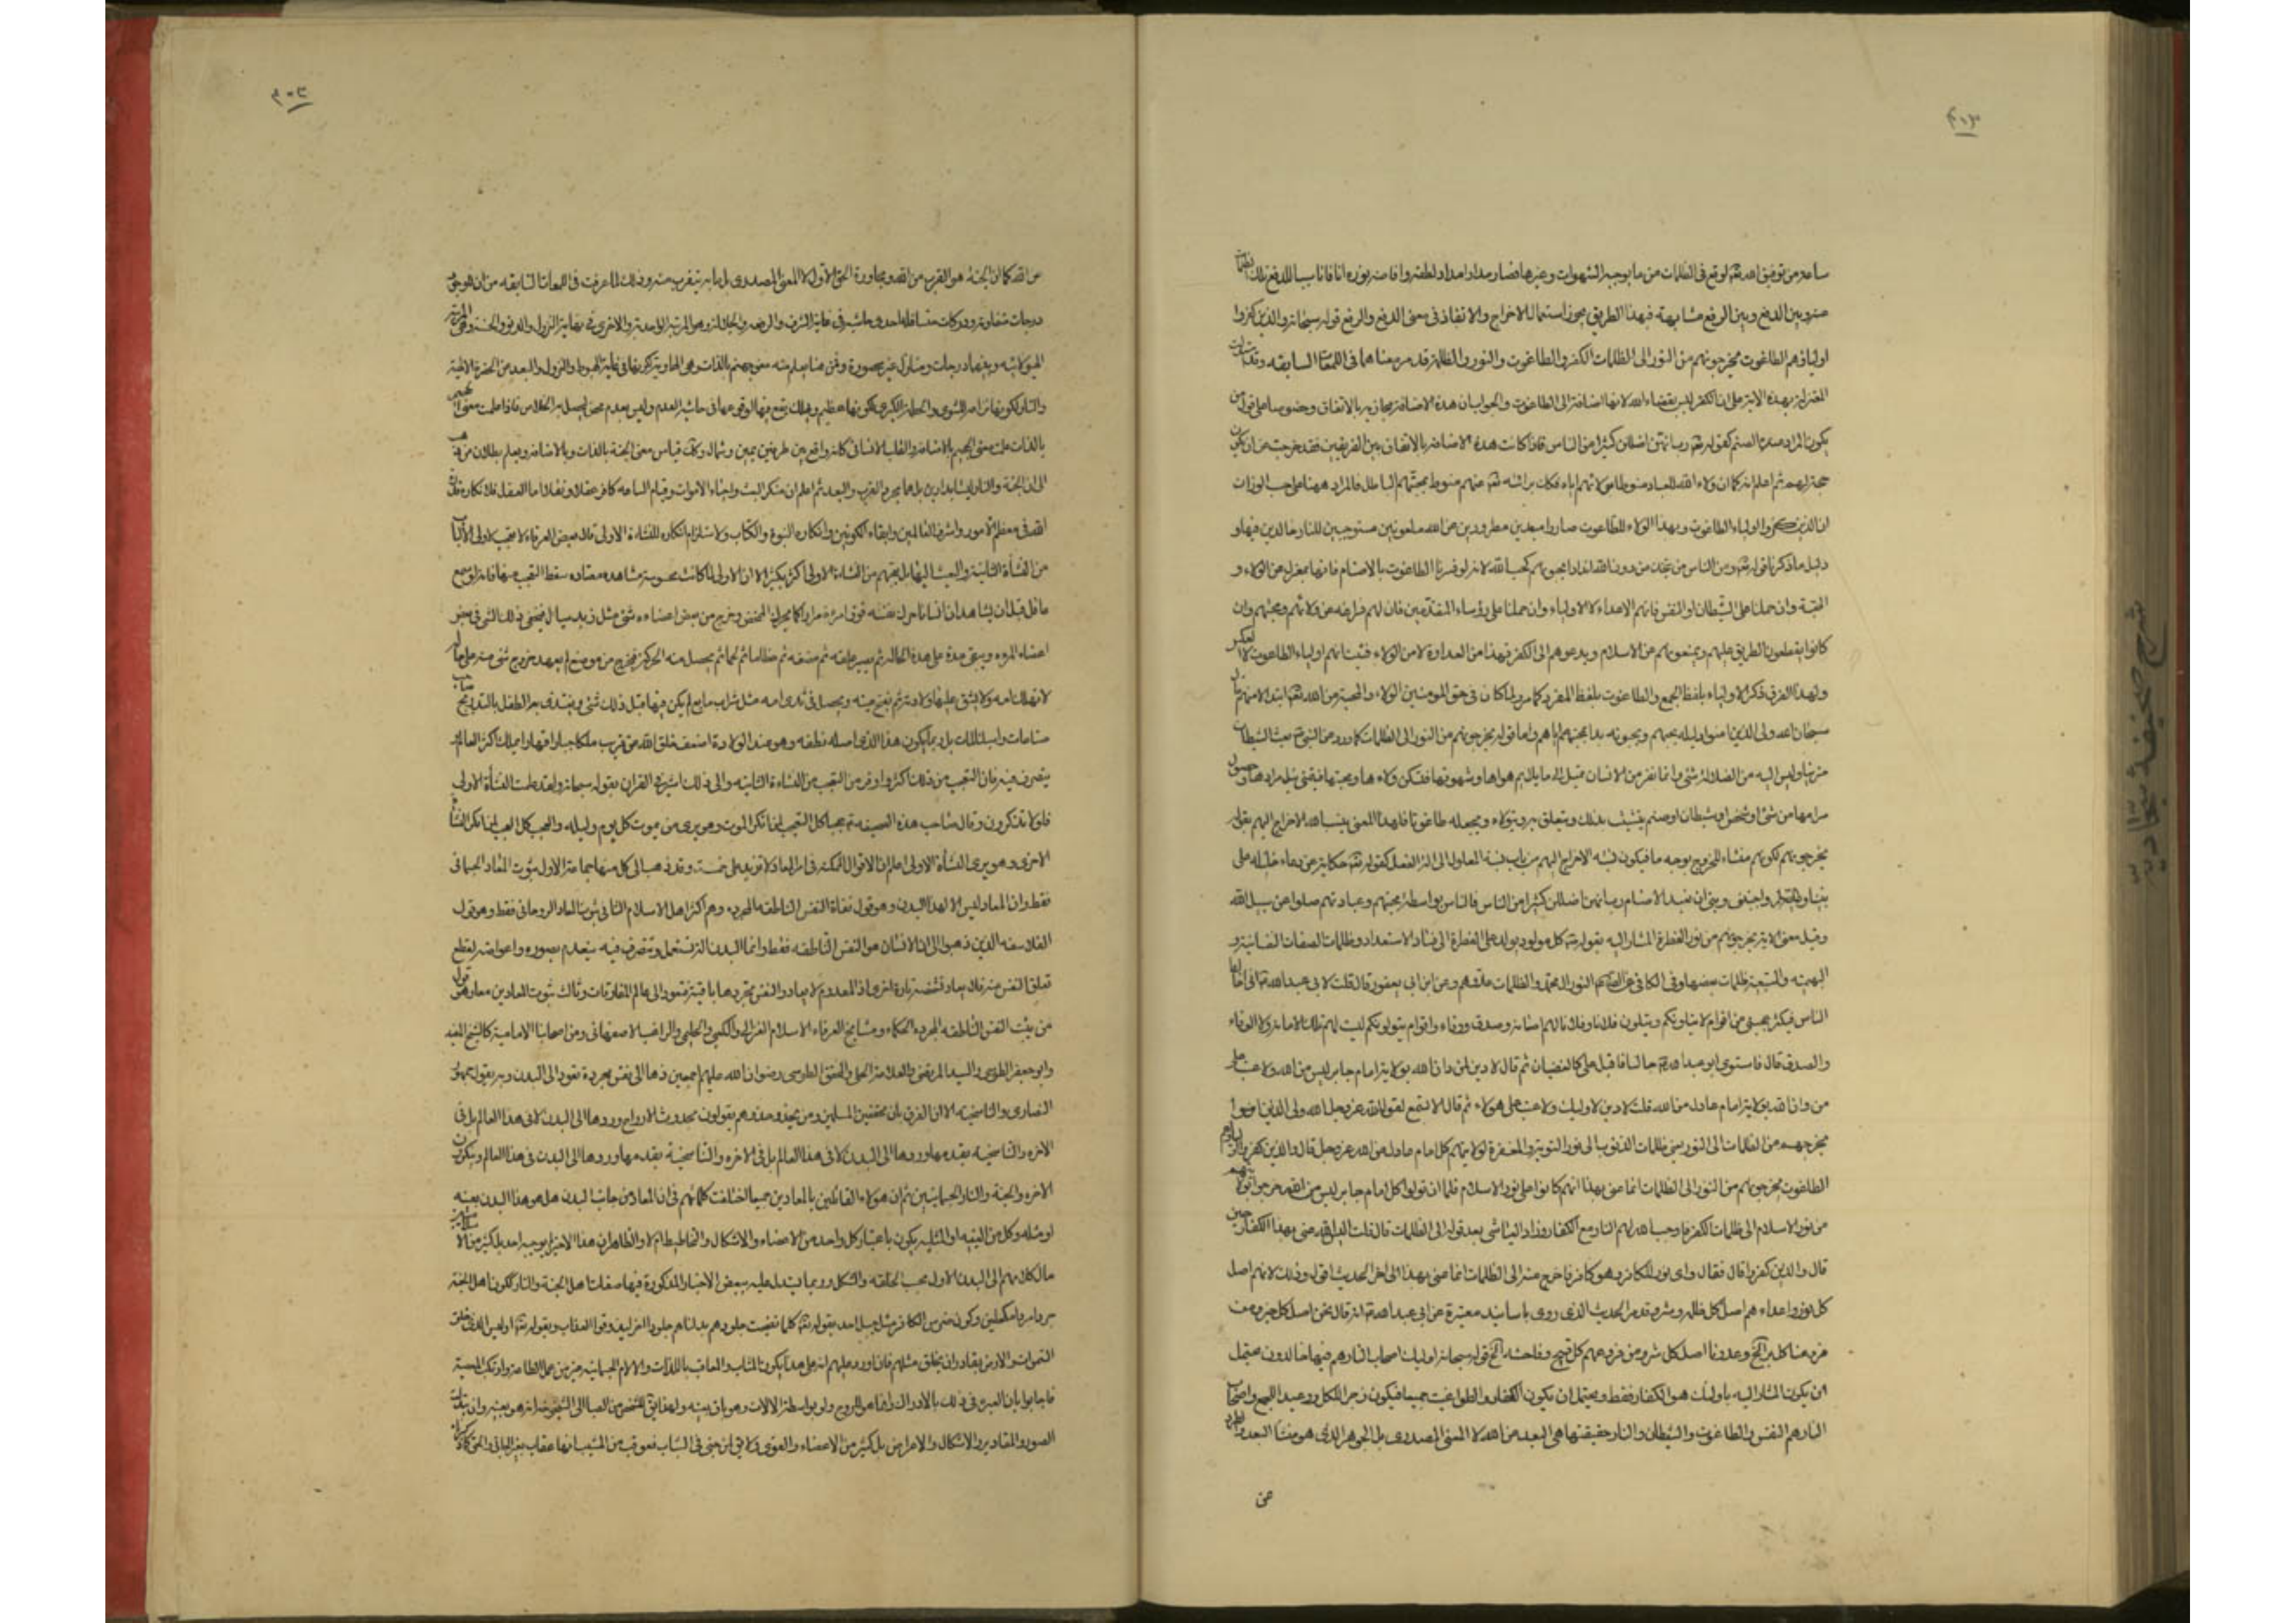 ساعد من توفيق الله تعه لوقع في الظلمات من ما يوجبه الشهوات وغيرها فصار مدار امداد لطفه وافاضة نوره انا فانا سببا لدفع تلك الظلمات
منه وبين الدفع وبين الرفع مشابهة فبهذا الطريق يجوز استعمال الاخراج والانقاذ في معنى الدفع والرفع قوله سبحانه والذين كفروا
اولياؤهم الطاغوت يخرجونهم من النور الى الظلمات الكفر والطاغوت والنور والظلمة قد مر معناهما في اللمعات السابقه وقد استدلت
المعتزلة بهذه الاية على ان الكفر ليس بقضاء الله لانها اضافة الى الطاغوت والجواب ان هذه الاضافة مجازية بالاتفاق وخصوصا على قول من
يكون المراد منه الصنم كقوله تعه رب انهن اضللن كثيرا من الناس فاذا كانت هذه الاضافة بالاتفاق بين الفريقين فقد خرجت عن ان يكون
حجة لهم ثم اعلم انه كما ان ولاء الله للعباد منوط باخلاصهم اياه فكان برائته تعه عنهم منوط بمحبتهم الباطل فالمراد ههنا على حسب الوزان
ان الذين كفروا اولياء الطاغوت وبهذا الولاء للطاغوت صاروا مبعدين مطرودين عن الله ملعونين مستوجبين للنار خالدين فيها و
دليل ما ذكرنا قوله تعه ومن الناس من يتخذ من دون الله اندادا يحبونهم كحب الله لانه لو فسرنا الطاغوت بالاصنام فانها بمعزل عن الولاء و
المحبة وان حملنا على الشيطان او النفس فانهم الاعداء لا الاولياء وان حملنا على رؤساء المتقدمين فان لهم فراغه عن ولائهم ومحبتهم وان
كانوا يقطعون الطريق عليهم ويمنعونهم عن الاسلام ويدعوهم الى الكفر فهذا من العداوة لا من الولاء فثبت انهم اولياء الطاغوت لا العكس
ولهذا الفرق ذكر الاولياء بلفظ الجمع والطاغوت بلفظ المفرد كما مر ولما كان في حق المومنين الولاء والمحبة من الله تعه ابتداء لا منهم قال
سبحان الله ولي الذين امنوا دليله يحبهم ويحبونه بدا بمحبتهم اياهم واما قوله يخرجونهم من النور الى الظلمات كما ورد عن النبي بعث الشيطان
مزينا وليس اليه من الضلالة شئ وانما نفر من الانسان
مرامها من شئ او شخص او شيطان او صنم يتشبث بذلك ويتعلق به ويتولاه ويجعله طاغوتا فلهذا المعنى ينسب الله الاخراج اليهم بقوله
يخرجونهم لكونهم منشاء للخروج بوجه ما فيكون نسبة الاخراج اليهم من باب نسبة المعلول الى الة الفعل كقوله تعه حكاية عن دعاء خليله على
نبينا و واجنبني وبني ان نعبد الاصنام رب انهن اضللن كثيرا من الناس فالناس بواسطة محبتهم وعبادتهم ضلوا عن سبيل الله
وقيل معنى الاية يخرجونهم من نور الفطرة المشار اليه بقوله كل مولود يولد على الفطرة الى فساد الاستعداد وظلمات الصفات النفسانية و
البهيمية والسبعية ظلمات بعضها وفي الكافي عن النور ال محمد والظلمات عدوهم وعن ابن ابي يعفور قال قلت لابي عبد الله اني اخالط
الناس فيكثر عجبي من اقوام لا يتولونكم ويتولون فلانا وفلانا لهم امانة وصدق ووفاء واقوام يتولونكم ليست لهم تلك الامانة ولا الوفاء
والصدق قال فاستوى ابو عبد الله جالسا فاقبل على كالغضبان ثم قال لا دين لمن دان الله بولاية امام جاير ليس من الله ولا عتب على
من دان الله بولاية امام عادل من الله قلت لا دين لاوليك ولا عتب على هولاء ثم قال الا تسمع لقول الله عز وجل الله ولي الذين امنوا
يخرجهم من الظلمات الى النور يعني ظلمات الذنوب الى نور التوبة والمغفرة لولايتهم كل امام عادل من الله عز وجل قال والذين كفروا اولياؤهم
الطاغوت يخرجونهم من النور الى الظلمات انما عنى بهذا انهم كانوا على نور الاسلام فلما ان تولوا كل امام جاير ليس من الله خرجوا بولايتهم
من نور الاسلام الى ظلمات الكفر فاوجب الله لهم النار مع الكفار وزاد العياشي بعد قوله الى الظلمات قال قلت اليس الله عنى بهذا الكفار حين
قال والذين كفروا قال فقال واي نور للكافر وهو كافر فاخرج منه الى الظلمات انما عنى بهذا الى اخر الحديث اقول وذلك لانهم اصل
كل نور واعداءهم اصل كل ظلمة وشر وقد مر الحديث الذي روى باسانيد معتبرة عن ابي عبد الله انه قال نحن اصل كل خير ومن
فروعنا كل بر الخ وعدونا اصل كل شر ومن فروعهم كل قبيح وفاحشه الخ قوله سبحانه اوليك اصحاب النار هم فيها خالدون يحتمل
ان يكون المشار اليه باوليك هو الكفار فقط ويحتمل ان يكون الكفار والطواغيت جميعا فيكون زجرا للكل ووعيدا للجميع واصحاب
النار هم النفس والطاغوت والشيطان والنار حقيقتها هي البعد من الله لا المعنى المصدري بل الجوهر الذي هو منشأ البعد والطرد
عن
من الله كما ان الجنة هو القرب من الله ومجاورة الحق الاول لا المعنى المصدري بل ما به يتقرب منه وذلك لما عرفت في اللمعات السابقه من ان
درجات متفاوتة ودركات متسافلة احدى حاشيته في غاية الشرف والرفعة والجلالة وهو المرتبة الواحدية والاخرى في نهاية النزول والدنو والخسة وهي المرتبة
الهيولانية وبينهما درجات ومنازل غير محصورة ومن هنا يعلم منه معنى جهنم بالذات وهي الهاوية لكونها في غاية الهبوط والنزول والبعد من الحضرة الالهية
بالذات علمت معنى الجحيم بالاضافة والقلب الانساني كانه واقع بين طرفين يمين وشمال وكك قياس معنى الجنة بالذات وبالاضافة ويعلم بطلان من ذهب
الى ان الجنة والنار ليستا بدارين بل هما مجرد القرب والبعد ثم اعلم ان منكر البعث واحياء الاموات وقيام الساعه كافر عقلا ونقلا اما العقل فلانكاره قدرة
الله في معظم الامور واشرف العالمين وابقاء الكونين وانكاره النبوة والكتاب ولاستلزام انكاره للنشاة الاولى قال بعض العرفاء لا تعجب لاولى الالباب
من النشأة الثانية والعبث اليها بل تعجبهم من النشاءة الاولى اكثر بكثير الا ان الاولى لما كانت محسوسة مشاهده معتاده سقط التعجب عنها فانه لو سمع
عاقل قبل ان يشاهد ان انسانا حرك نفسه فوق امرءة مرارا كما يحرك الممخض وخرج من بعض اعضاءه شئ مثل زبد سيال فيختفى ذلك الشئ في بعض
اعضاء المرءه ويبقى مدة على هذه الحالة ثم يصير علقه ثم مضغه ثم عظاما ثم لحما ثم يحصل منه الحركة فيخرج من موضع لم يعهد خروج شئ منه على حالة
لا يهلك امه ولا يشق عليها ولادته ثم يفتح عينيه ويحصل في ثدى امه مثل شراب مايع لم يكن فيها قبل ذلك شئ ويغتذى بها الطفل بالتدريج صاحب
صناعات واستنباطات بل ربما يكون هذا الذي اصله نطفه وهو عند الولادة اضعف خلق الله عن قريب ملكا جبارا قهارا يملك اكثر العالم
يتصرف فيه فان التعجب من ذلك اكثر واوفر من التعجب من النشاءة الثانيه والى ذلك اشير في القران بقوله سبحانه ولقد علمتم النشأة الاولى
فلولا تذكرون وقال صاحب هذه الصحيفه عجبا كل العجب لمن انكر الموت وهو يرى من يموت كل يوم وليله والعجب كل العجب لمن انكر النشأة
الاخرى وهو يرى النشأة الاولى اعلم ان الاقوال الممكنة في امر المعاد لا تزيد على خمسة وقد ذهب الى كل منها جماعة الاول ثبوت المعاد الجسماني
فقط وان المعاد ليس الا لهذا البدن وهو قول نفاة النفس الناطقه المجرده وهم اكثر اهل الاسلام الثاني ثبوت المعاد الروحاني فقط وهو قول
الفلاسفه الذين ذهبوا الى ان الانسان هو النفس الناطقه فقط وانما البدن الة تستعمل وتتصرف فيه ينعدم بصوره واعراضه لقطع
تعلق النفس منه فلا يعاد بشخصه تارة اخرى اذ المعدوم لا يعاد والنفس بتجردها باقية فتعود الى عالم المفارقات وثالث ثبوت المعادين معا وهو قول
من يثبت النفس الناطقه المجرده الحكماء ومشايخ العرفاء الاسلام الغزالى والكعبي والحليمي والراغب الاصفهاني ومن اصحابنا الامامية كالشيخ المفيد
وابو جعفر الطوسي والسيد المرتضى والعلامة الحلي والمحقق الطوسي رضوان الله عليهم اجمعين ذهابا الى نفس مجردة تعود الى البدن وبه يقول جمهور
النصارى والتناسخيه الا ان الفرق بان محققين المسلمين ومن يحذو حذوهم يقولون بحدوث الارواح وردها الى البدن لا في هذا العالم بل في
الاخره والتناسخية بقدمها وردها الى البدن لا في هذا العالم بل في الاخره والتناسخية بقدمها وردها الى البدن في هذا العالم وينكرون
الاخره والجنة والنار الجسمانيتين ثم ان هولاء القائلين بالمعادين جميعا اختلفت كلماتهم في ان المعاد من جانب البدن هل هو هذا البدن بعينه
او مثله وكل من العينيه او المثليه يكون باعتبار كل واحد من الاعضاء والاشكال والتخاطيط ام لا والظاهر ان هذا الاخير لم يوجبه احد بل كثير من الاسلاميين
مال كلامهم الى البدن الاول بحسب الخلقه والشكل وربما يستدل عليه ببعض الاخبار المذكورة فيها صفات اهل الجنة والنار ككون اهل الجنة
جردا مردا مكحلين وكون ضرس الكافر مثل جبل احد بقوله تعه كلما نضجت جلودهم بدلناهم جلودا غيرها ليذوقوا العذاب وبقوله تعه اوليس الذي خلق
السموات والارض بقادر ان يخلق مثلهم فان اورد عليهم انه على هذا يكون المثاب والمعاقب باللذات والالام الجسمانيه غير من عمل الطاعة وارتكب المعصية
فاجابوا بان العبرة في ذلك بالادراك وانما هو الروح ولو بواسطة الالات وهو باق بعينه ولهذا يقال للشخص من الصبا الى الشيخوخة انه هو بعينه وان تبدلت
الصور والمقادير والاشكال والاعراض بل كثير من الاعضاء والقوى ولا يق لمن جنى في الشباب فعوقب من المشيب انها عقاب بغير الجاني
شرح صحيفه سجاديه